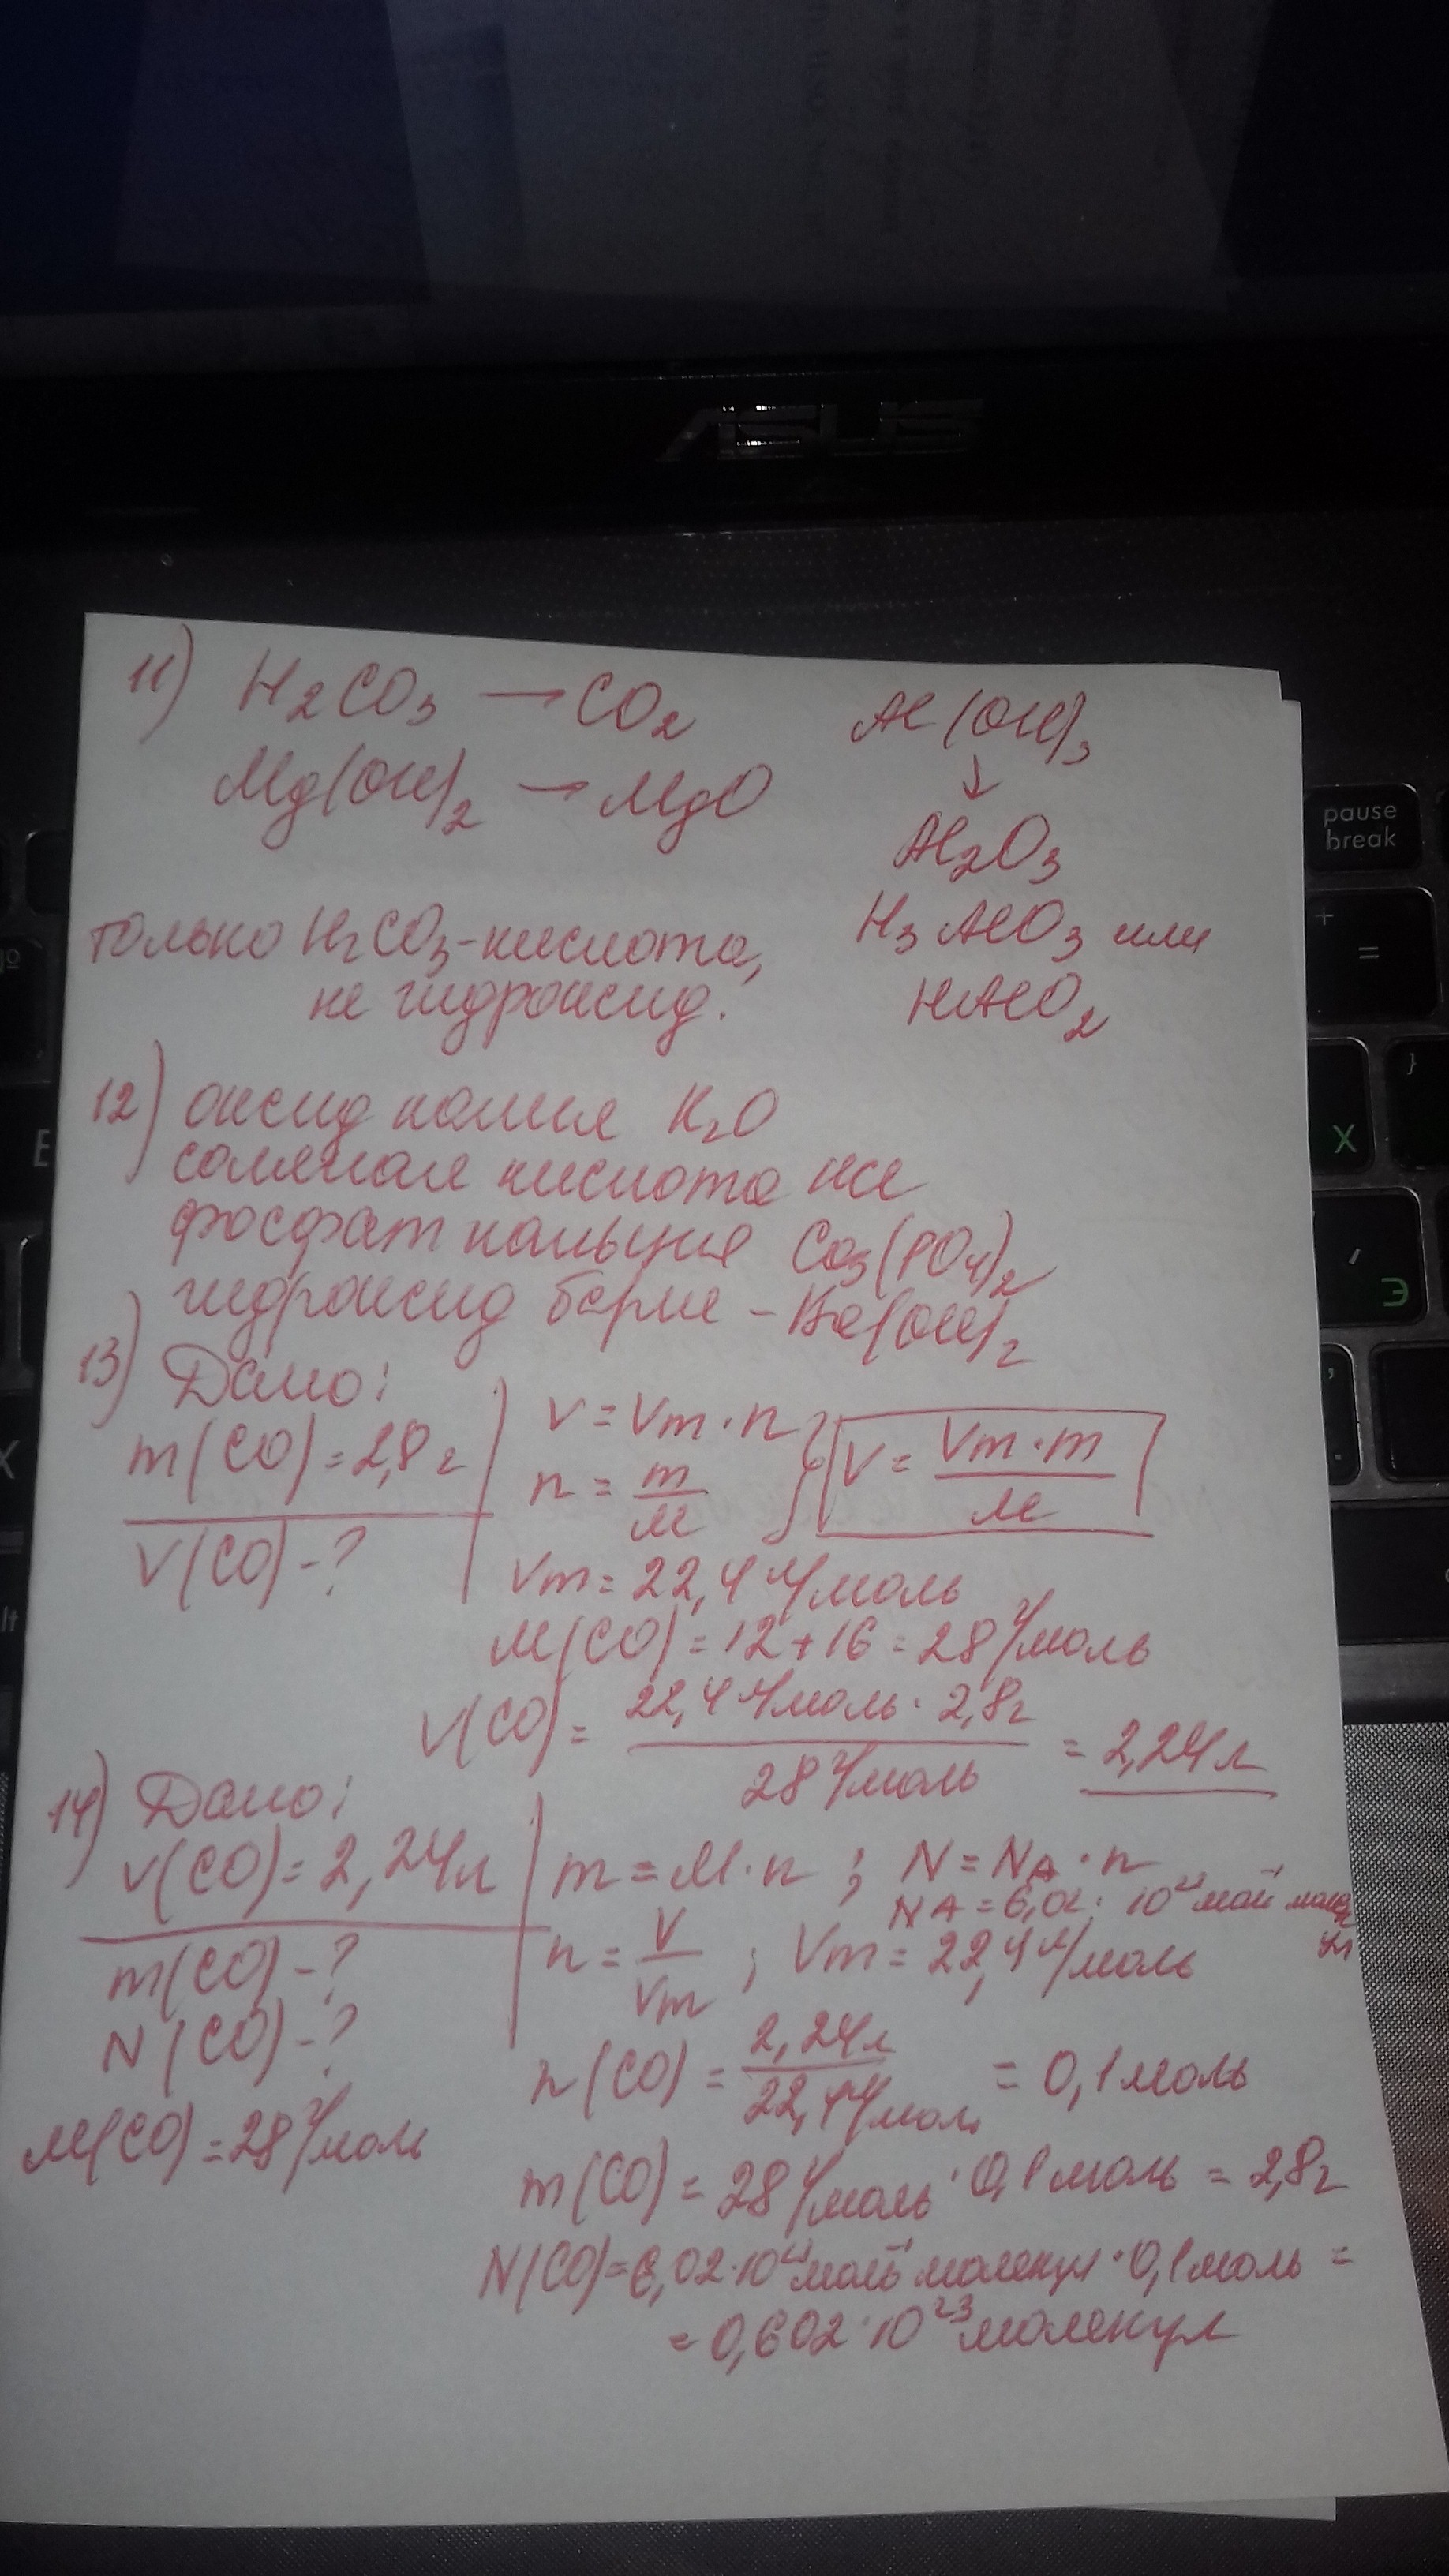 ASUS
pause
break
+
=
}
X
Э
11) H₂CO₃ → CO₂
Mg(OH)₂ → MgO
Al(OH)₃
↓
Al₂O₃
H₃AlO₃ или
HAlO₂
только H₂CO₃ - кислота,
не гидроксид.
12) оксид калия K₂O
соляная кислота HCl
фосфат кальция Ca₃(PO₄)₂
гидроксид бария - Ba(OH)₂
13) Дано:
m(CO) = 2,8 г
V(CO) - ?
V = Vm · n
n = m/M
V = Vm · m / M
Vm = 22,4 л/моль
M(CO) = 12 + 16 = 28 г/моль
V(CO) = 22,4 л/моль · 2,8 г / 28 г/моль = 2,24 л
14) Дано:
V(CO) = 2,24 л
m(CO) - ?
N(CO) - ?
M(CO) = 28 г/моль
m = M · n ; N = NA · n
NA = 6,02 · 10
n = V/Vm ; Vm = 22,4 л/моль
n(CO) = 2,24 л / 22,4 л/моль = 0,1 моль
m(CO) = 28 г/моль · 0,1 моль = 2,8 г
N(CO) = 6,02 · 10 молекул · 0,1 моль =
= 0,602 · 10²³ молекул